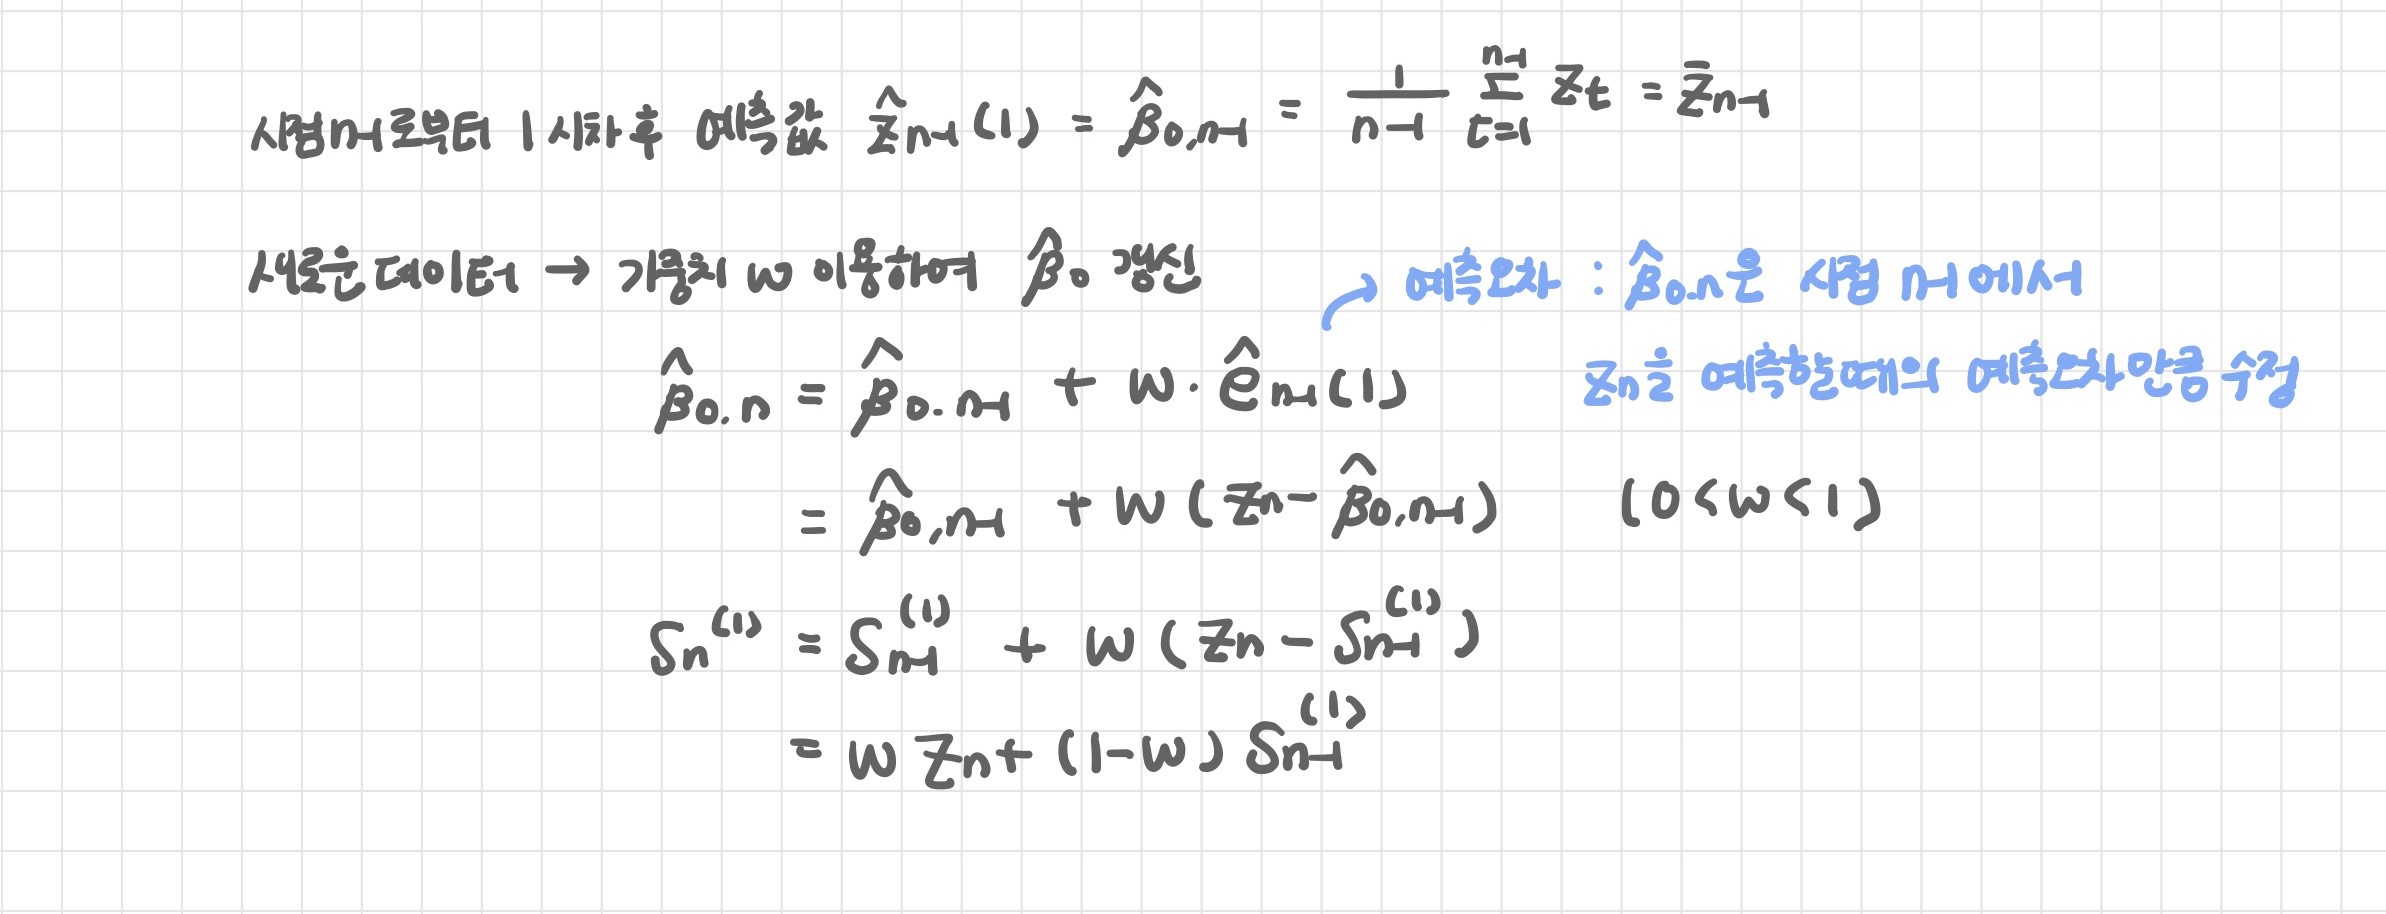 시점 n-1로부터 1시차 후 예측값 ẑn-1(1) = β̂0,n-1 = 1/(n-1) Σ(t=1, n-1) Zt = z̄n-1
새로운 데이터 → 가중치 w 이용하여 β̂0 갱신
예측오차 : β̂0.n은 시점 n-1에서
zn을 예측할때의 예측오차만큼 수정
β̂0.n = β̂0.n-1 + w · ên-1(1)
= β̂0,n-1 + w (zn - β̂0,n-1) (0 < w < 1)
Sn(1) = Sn-1(1) + w (zn - Sn-1(1))
= w zn + (1-w) Sn-1(1)